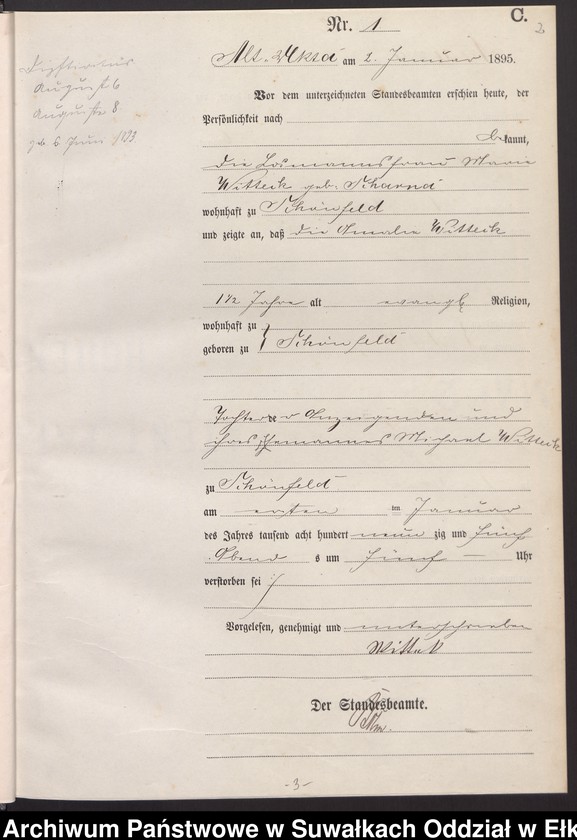 C.
2
Nr. 1
Alt-Ukta am 2. Januar 1895.
August 6
Auguste 8
geb. 6 Juni 1893
Vor dem unterzeichneten Standesbeamten erschien heute, der
Persönlichkeit nach
bekannt,
die Losmannsfrau Marie
Witteck geb. Scharna
wohnhaft zu Schönfeld
und zeigte an, daß die Amalie Witteck
1 1/2 Jahre alt evangl Religion,
wohnhaft zu
geboren zu } Schönfeld
Tochter der Anzeigenden und
ihres Ehemannes Michael Witteck
zu Schönfeld
am ersten ten Januar
des Jahres tausend acht hundert neun zig und fünf
Abend s um fünf Uhr
verstorben sei
Vorgelesen, genehmigt und unterschrieben
Wittek
Der Standesbeamte.
-3-
Archiwum Państwowe w Suwałkach Oddział w Ełk